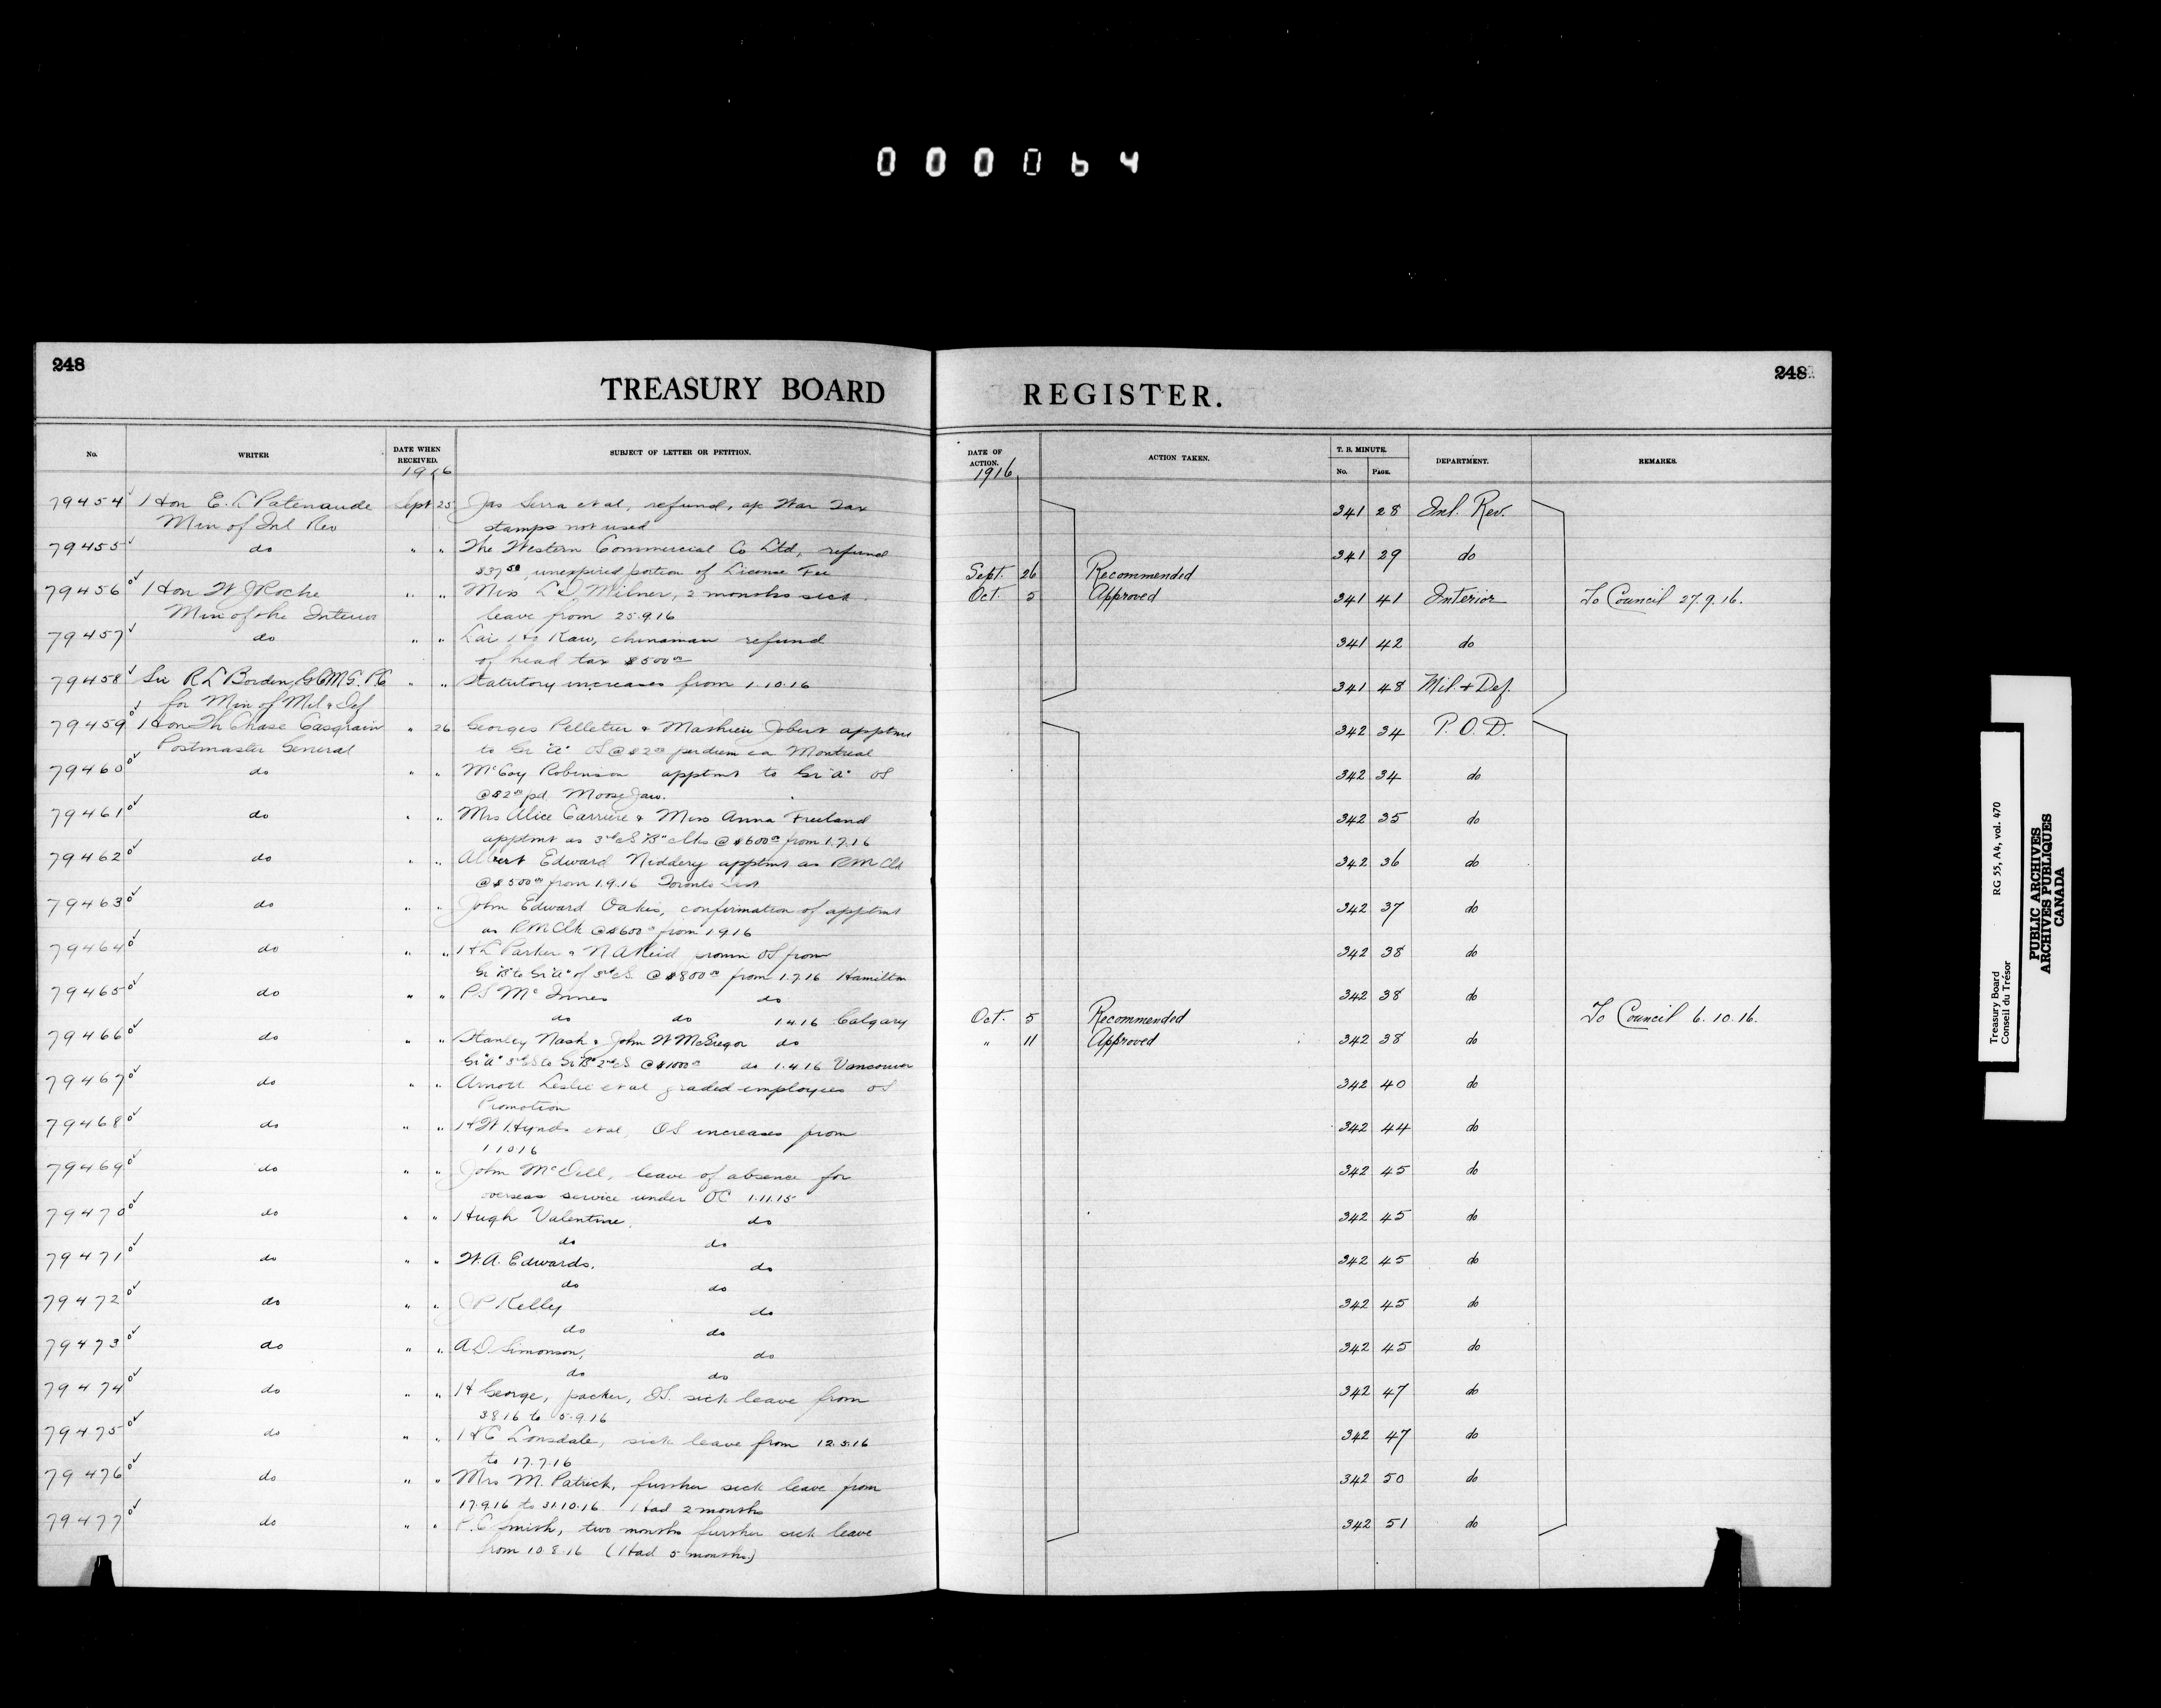 000064
248
TREASURY BOARD
REGISTER.
248
No.
WRITER
DATE WHEN RECEIVED.
SUBJECT OF LETTER OR PETITION.
DATE OF ACTION.
ACTION TAKEN.
T. B. MINUTE.
No.
PAGE.
DEPARTMENT.
REMARKS.
1916
1916
79454 Hon E. L Patenaude Sept 25 Jas Serra et al, refund, War Tax 341 28 Inl. Rev.
Min of Inl Rev stamps not used
79455 do " " The Western Commercial Co Ltd, refund 341 29 do
$37 50, unexpired portion of License Fee Sept. 26 Recommended
79456 Hon W J Roche " " Miss L D Milner, 2 months sick Oct. 5 Approved 341 41 Interior To Council 27.9.16.
Min of the Interior leave from 25.9.16
79457 do " " Lai Ho Kaw, chinaman refund 341 42 do
of head tax $500 00
79458 Sir R L Borden, G.C.M.G. P.C. " " Statutory increases from 1.10.16 341 48 Mil. & Def.
for Min of Mil & Def
79459 Hon Th Chase Casgrain " 26 Georges Pelletier & Mathieu Jobert apptmt 342 34 P. O. D.
Postmaster General to Gr "A" OS @ $2 00 per diem ea Montreal
79460 do " " McCoy Robinson apptmt to Gr "A" OS 342 34 do
@ $2 00 pd. Moose Jaw.
79461 do " " Mrs Alice Carriere & Miss Anna Freeland 342 35 do
apptmt as 3rd cl S "B" clks @ $600 00 from 1.7.16
79462 do " " Albert Edward Niddery apptmt as RM Clk 342 36 do
@ $500 00 from 1.9.16 Toronto Dist
79463 do " " John Edward Oakes, confirmation of apptmt 342 37 do
as RM Clk @ $600 from 1.9.16
79464 do " " H L Parker & N A Reid prom OS from 342 38 do
Gr "B" to Gr "A" of 3rd cl S. @ $800 00 from 1.7.16 Hamilton
79465 do " " P.S McInnes do 342 38 do
do do 1.4.16 Calgary Oct. 5 Recommended To Council 6.10.16.
79466 do " " Stanley Nash & John W McGregor do " 11 Approved 342 38 do
Gr "A" 3rd cl S to Gr "B" 2nd cl S @ $1000 do 1.4.16 Vancouver
79467 do " " Arnott Leslie et al graded employees OS 342 40 do
Promotion
79468 do " " H W Hynds et al, OS increases from 342 44 do
1 10 16
79469 do " " John McDell, leave of absence for 342 45 do
overseas service under OC 1.11.15
79470 do " " Hugh Valentine, do 342 45 do
do do
79471 do " " W. A. Edwards, do 342 45 do
do do
79472 do " " J P Kelly do 342 45 do
do do
79473 do " " A.D. Simonson, do 342 45 do
do do
79474 do " " H George, packer, OS. sick leave from 342 47 do
3.8.16 to 5.9.16
79475 do " " H C Lonsdale, sick leave from 12.5.16 342 47 do
to 17.7.16
79476 do " " Mrs M. Patrick, further sick leave from 342 50 do
17.9.16 to 31.10.16. Had 2 months
79477 do " " P. C Smith, two months further sick leave 342 51 do
from 10.8.16 (Had 5 months)
Treasury Board RG 55, A4, vol. 470
Conseil du Trésor
PUBLIC ARCHIVES
ARCHIVES PUBLIQUES
CANADA